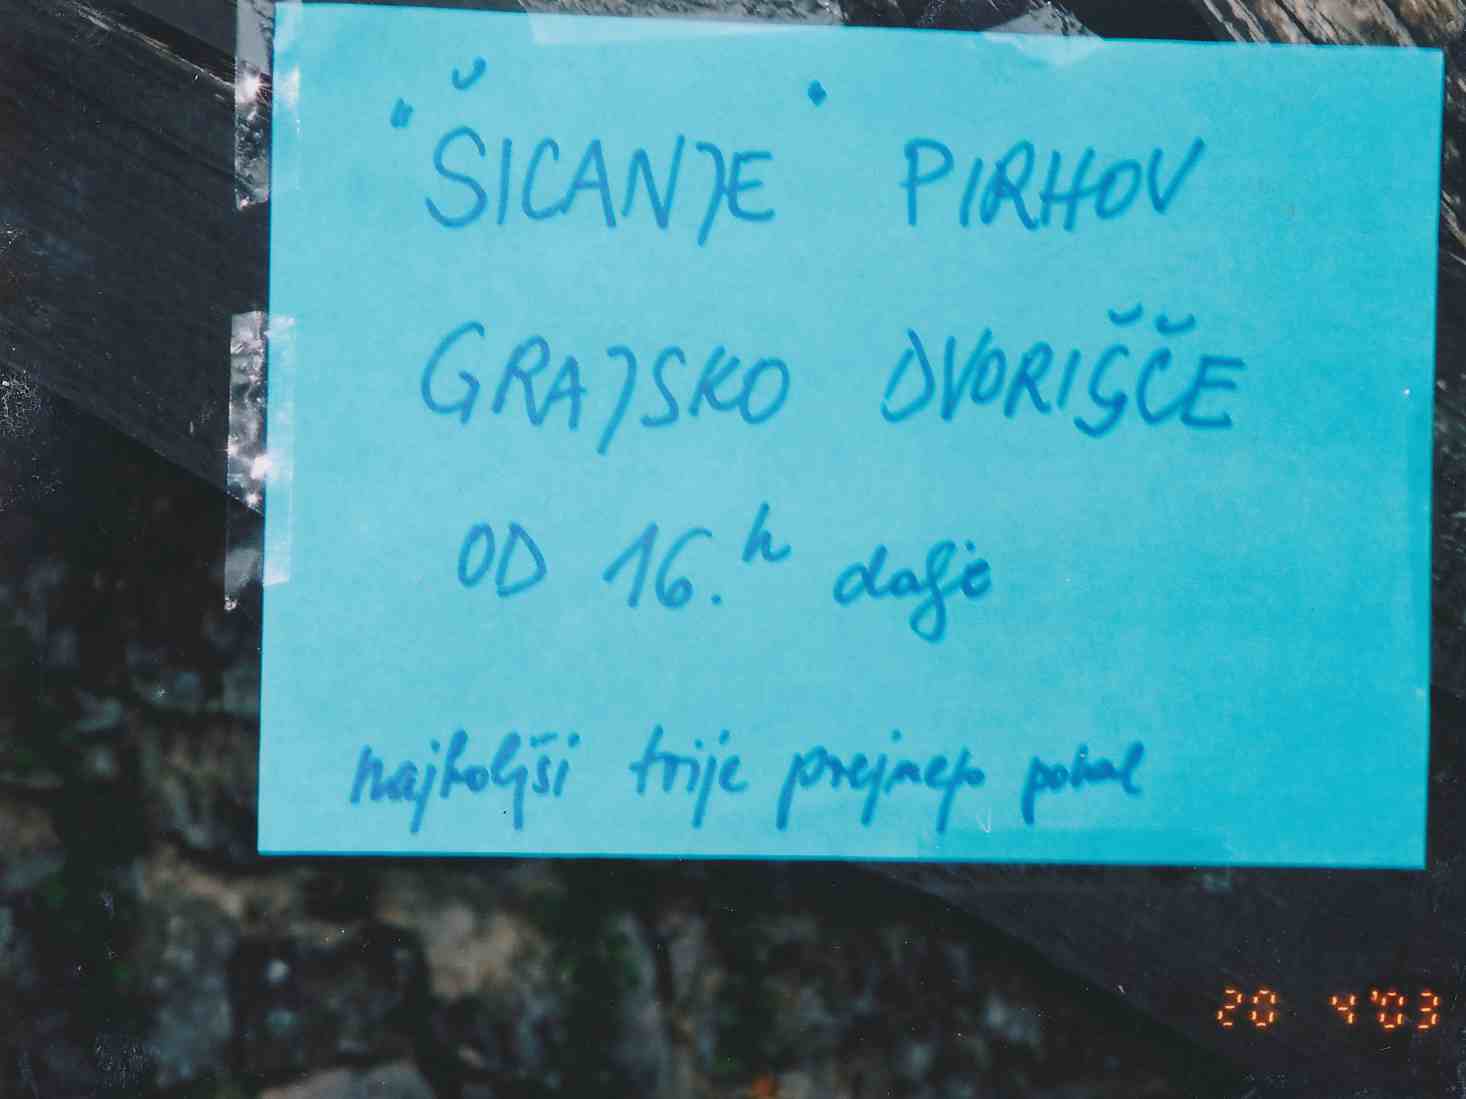 "ŠICANJE" PIRHOV
GRAJSKO DVORIŠČE
OD 16.h dalje
najboljši trije prejmejo pokal
20 4'03